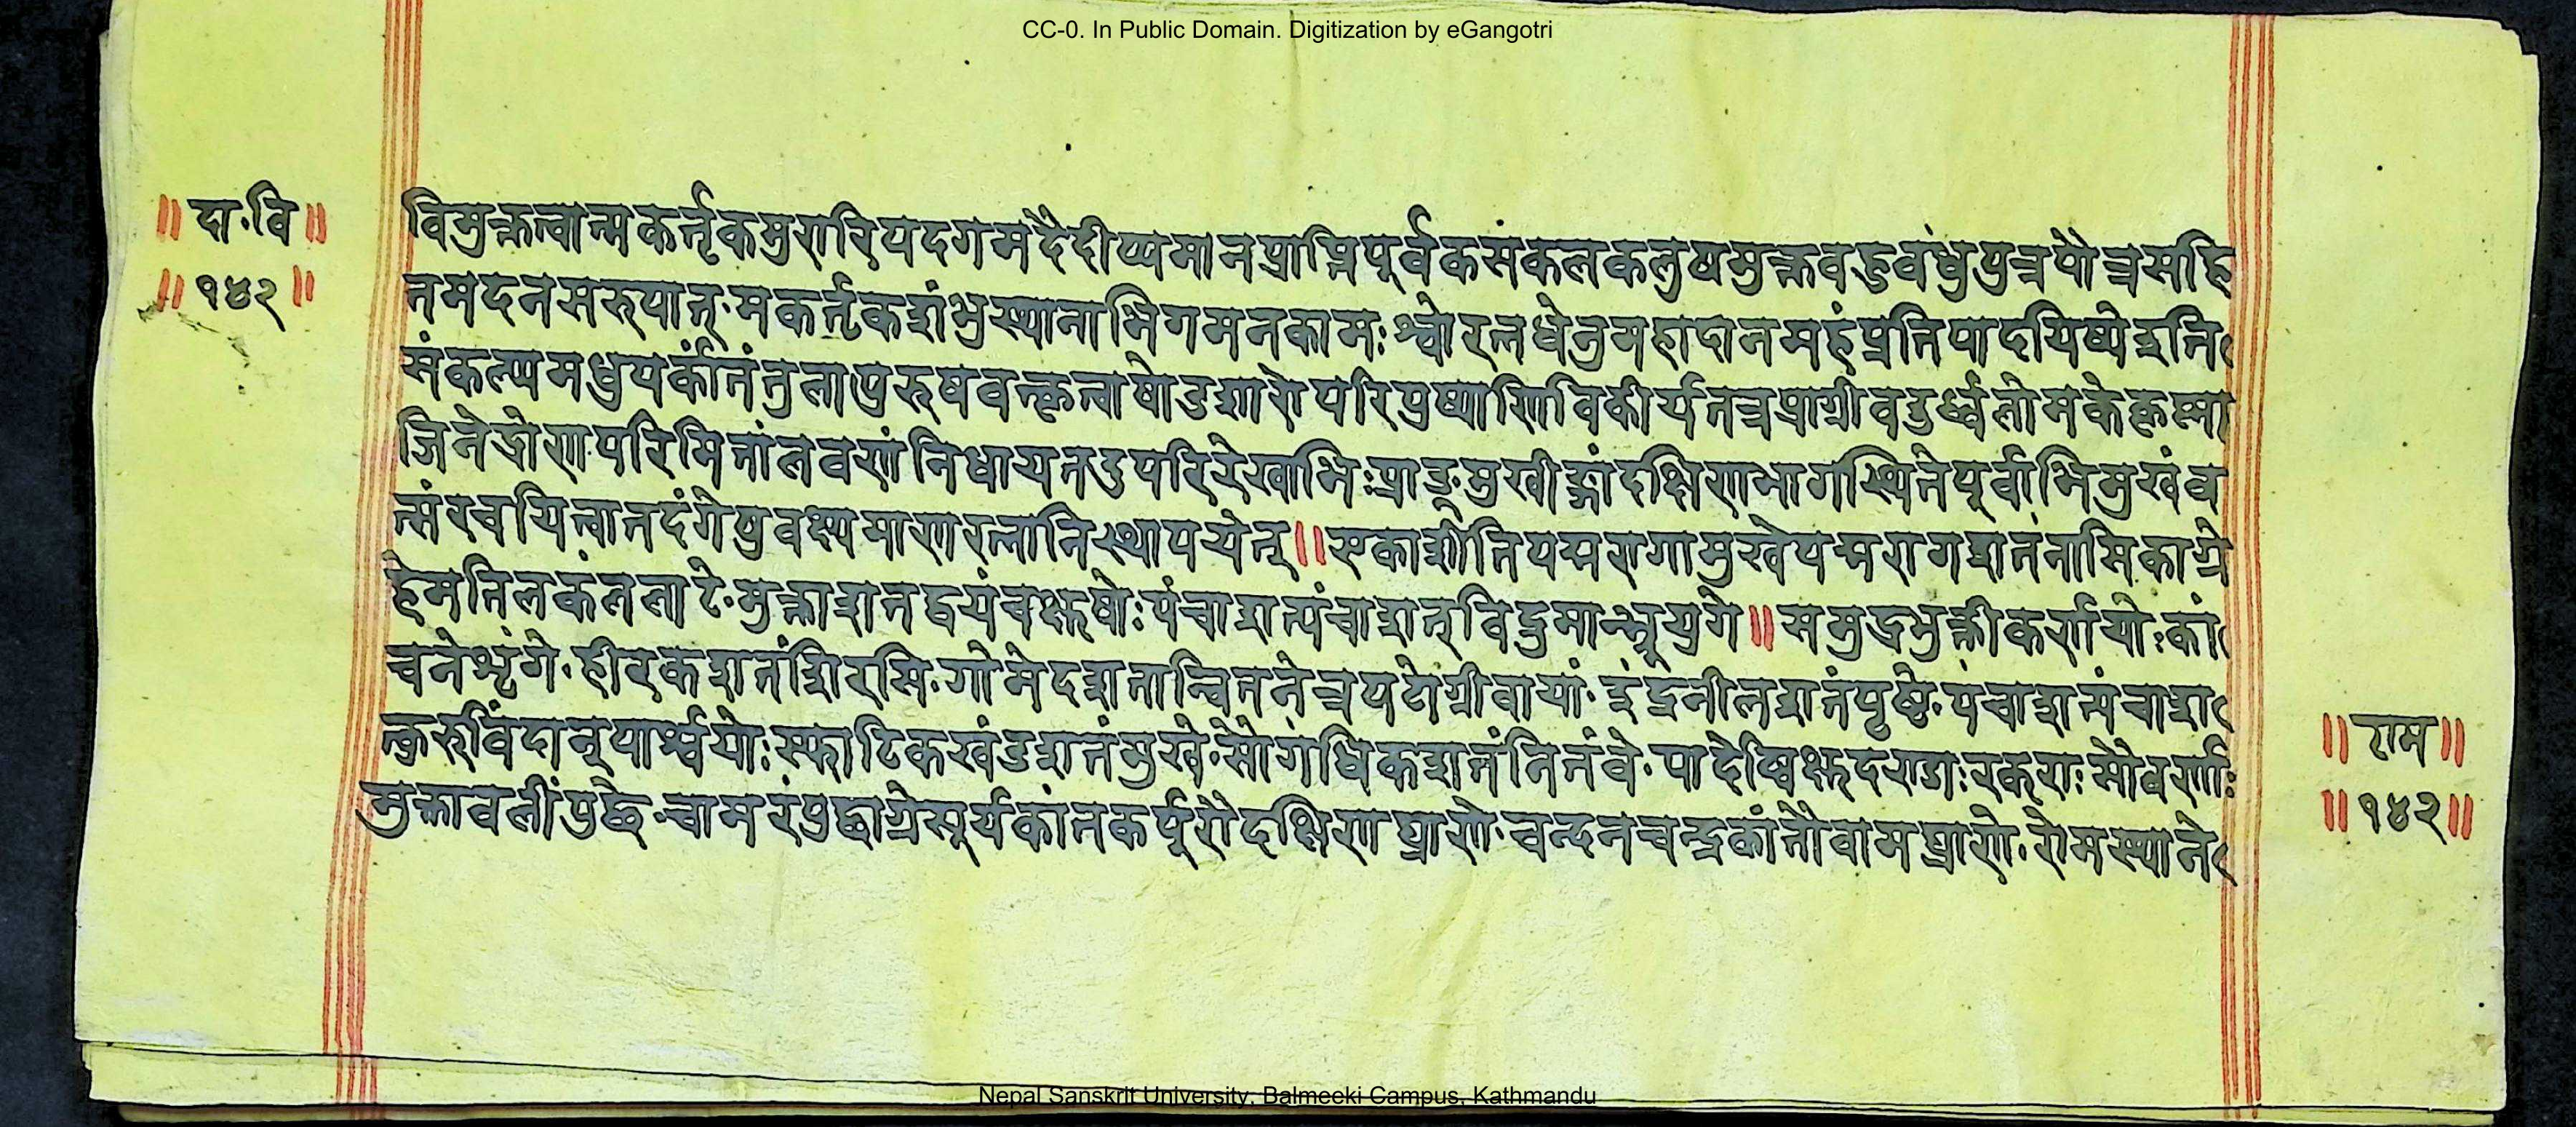 CC-0. In Public Domain. Digitization by eGangotri
॥ दा॰वि॥
॥१४२॥
विमुक्तत्वान्मकर्त्तृकमुरारिपदगमदैदीप्यमानप्राप्तिपूर्वकसकलकलुषमुक्तवहुवंधुपुत्रपौत्रसहि
तमदनसरुपात्तु॰मकर्त्तृकशंभुस्थानाभिगमनकामःश्वोरत्नधेनुमहादानमहंप्रतिपादयिष्येइति
संकल्प्यमधुपर्कांतंतुलापुरुषवत्कृत्वाषोडशारोपरिपुष्पाणिविकीर्यतत्रप्राग्रीवउर्ध्वलोमकेकृष्णा
जिनेद्रोणपरिमितांलवणंनिधायतदुपरिरेखाभिःप्राङ्मुखीङ्गांदक्षिणभागस्थितेपूर्वाभिमुखंव
त्संरचयित्वातदंगेषुवक्ष्यमाणरत्नानिस्थापयेत्॥एकाशीतिपद्मरागामुखेपद्मरागशतंनासिकाग्रे
हेमतिलकंललाटे॰मुक्ताशतद्वयंचक्षुषोःपंचाशत्पंचाशत्विद्रुमान्भ्रूयुगे॥समुद्रभुक्तीकर्णयोःकां
चनेशृंगे॰हीरकशतंशिरसि॰गोमेदशतान्वितनेत्रपटोग्रीवायां॰इंद्रनीलशतंपृष्ठे॰पंचाशत्पंचाश
त्कुरुविंदान्पार्श्वयोःस्फाटिकखंडशतंमुखे॰सौगंधिकशतंनितंवे॰पादेष्विक्षुदण्डाःरकराःसौवर्णाः
मुक्तावलींपुछे॰चामरंपुछाग्रेसूर्यकांतकर्पूरौदक्षिणघ्राणे॰चन्दनचन्द्रकांतौवामघ्राणे॰रोमस्थाने
॥राम॥
॥१४२॥
Nepal Sanskrit University, Balmeeki Campus, Kathmandu